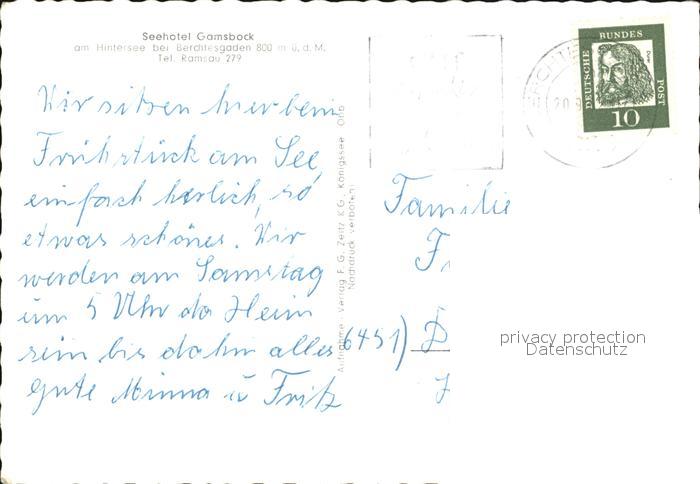 Seehotel Gamsbock
am Hintersee bei Berchtesgaden 800 m ü. d. M.
Tel. Ramsau 279
Wir sitzen hier beim
Frühstück am See,
einfach herlich, so
etwas schönes. Wir
werden am Samstag
um 5 Uhr da Heim
sein bis dahin alles
gute Minna u Fritz
Aufnahme: Verlag F. G. Zeitz KG., Königssee / Obb
Nachdruck verboten
DEUTSCHE BUNDES POST
Dürer
10
20.9
Familie
F
6451) D
privacy protection
Datenschutz